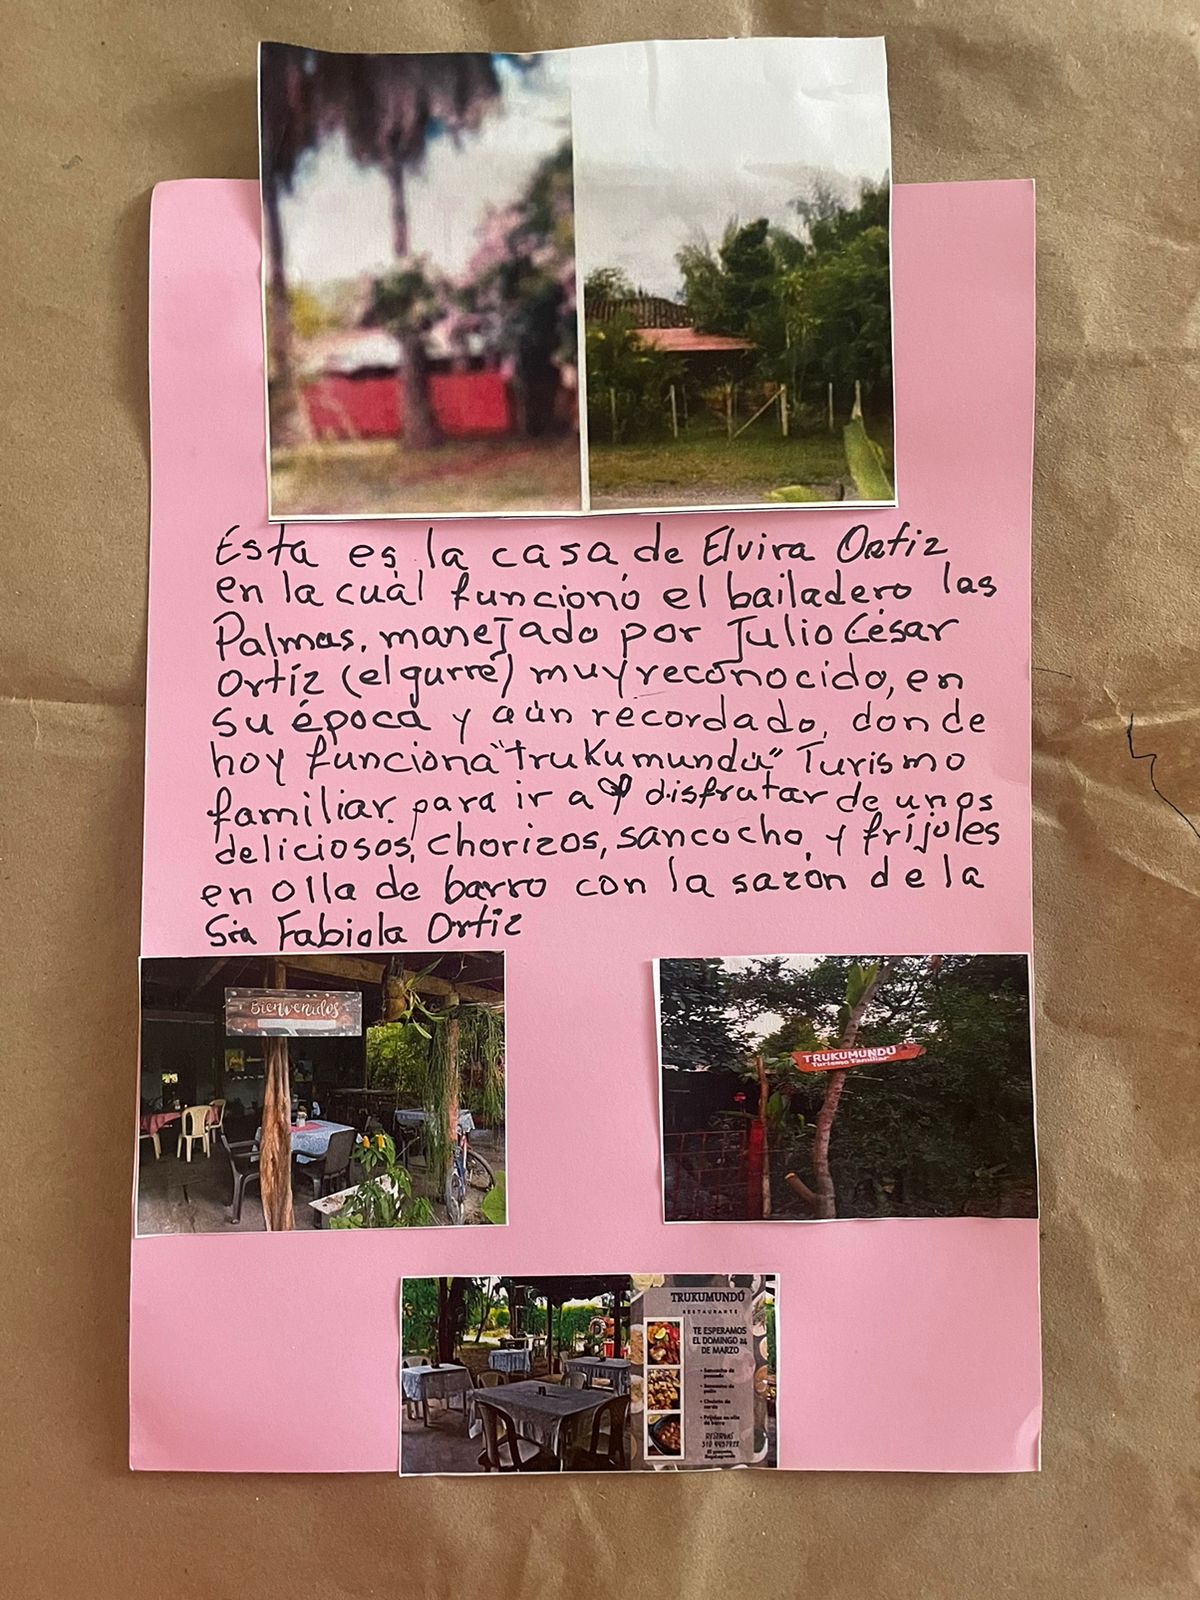 Esta es la casa de Elvira Ortiz
en la cuál funcionó el bailadero las
Palmas, manejado por Julio César
Ortíz (el gurre) muy reconocido, en
su época y aún recordado, donde
hoy funciona "trukumundú" Turismo
familiar para ir a disfrutar de unos
deliciosos, chorizos, sancocho, y fríjoles
en olla de barro con la sazón de la
Sra Fabiola Ortiz
Bienvenidos
TRUKUMUNDÚ
Turismo Familiar
TRUKUMUNDÚ
RESTAURANTE
TE ESPERAMOS
EL DOMINGO 24
DE MARZO
• Sancocho de
pescado
• Sancocho de
pollo
• Chuleta de
cerdo
• Frijoles en olla
de barro
RESERVAS